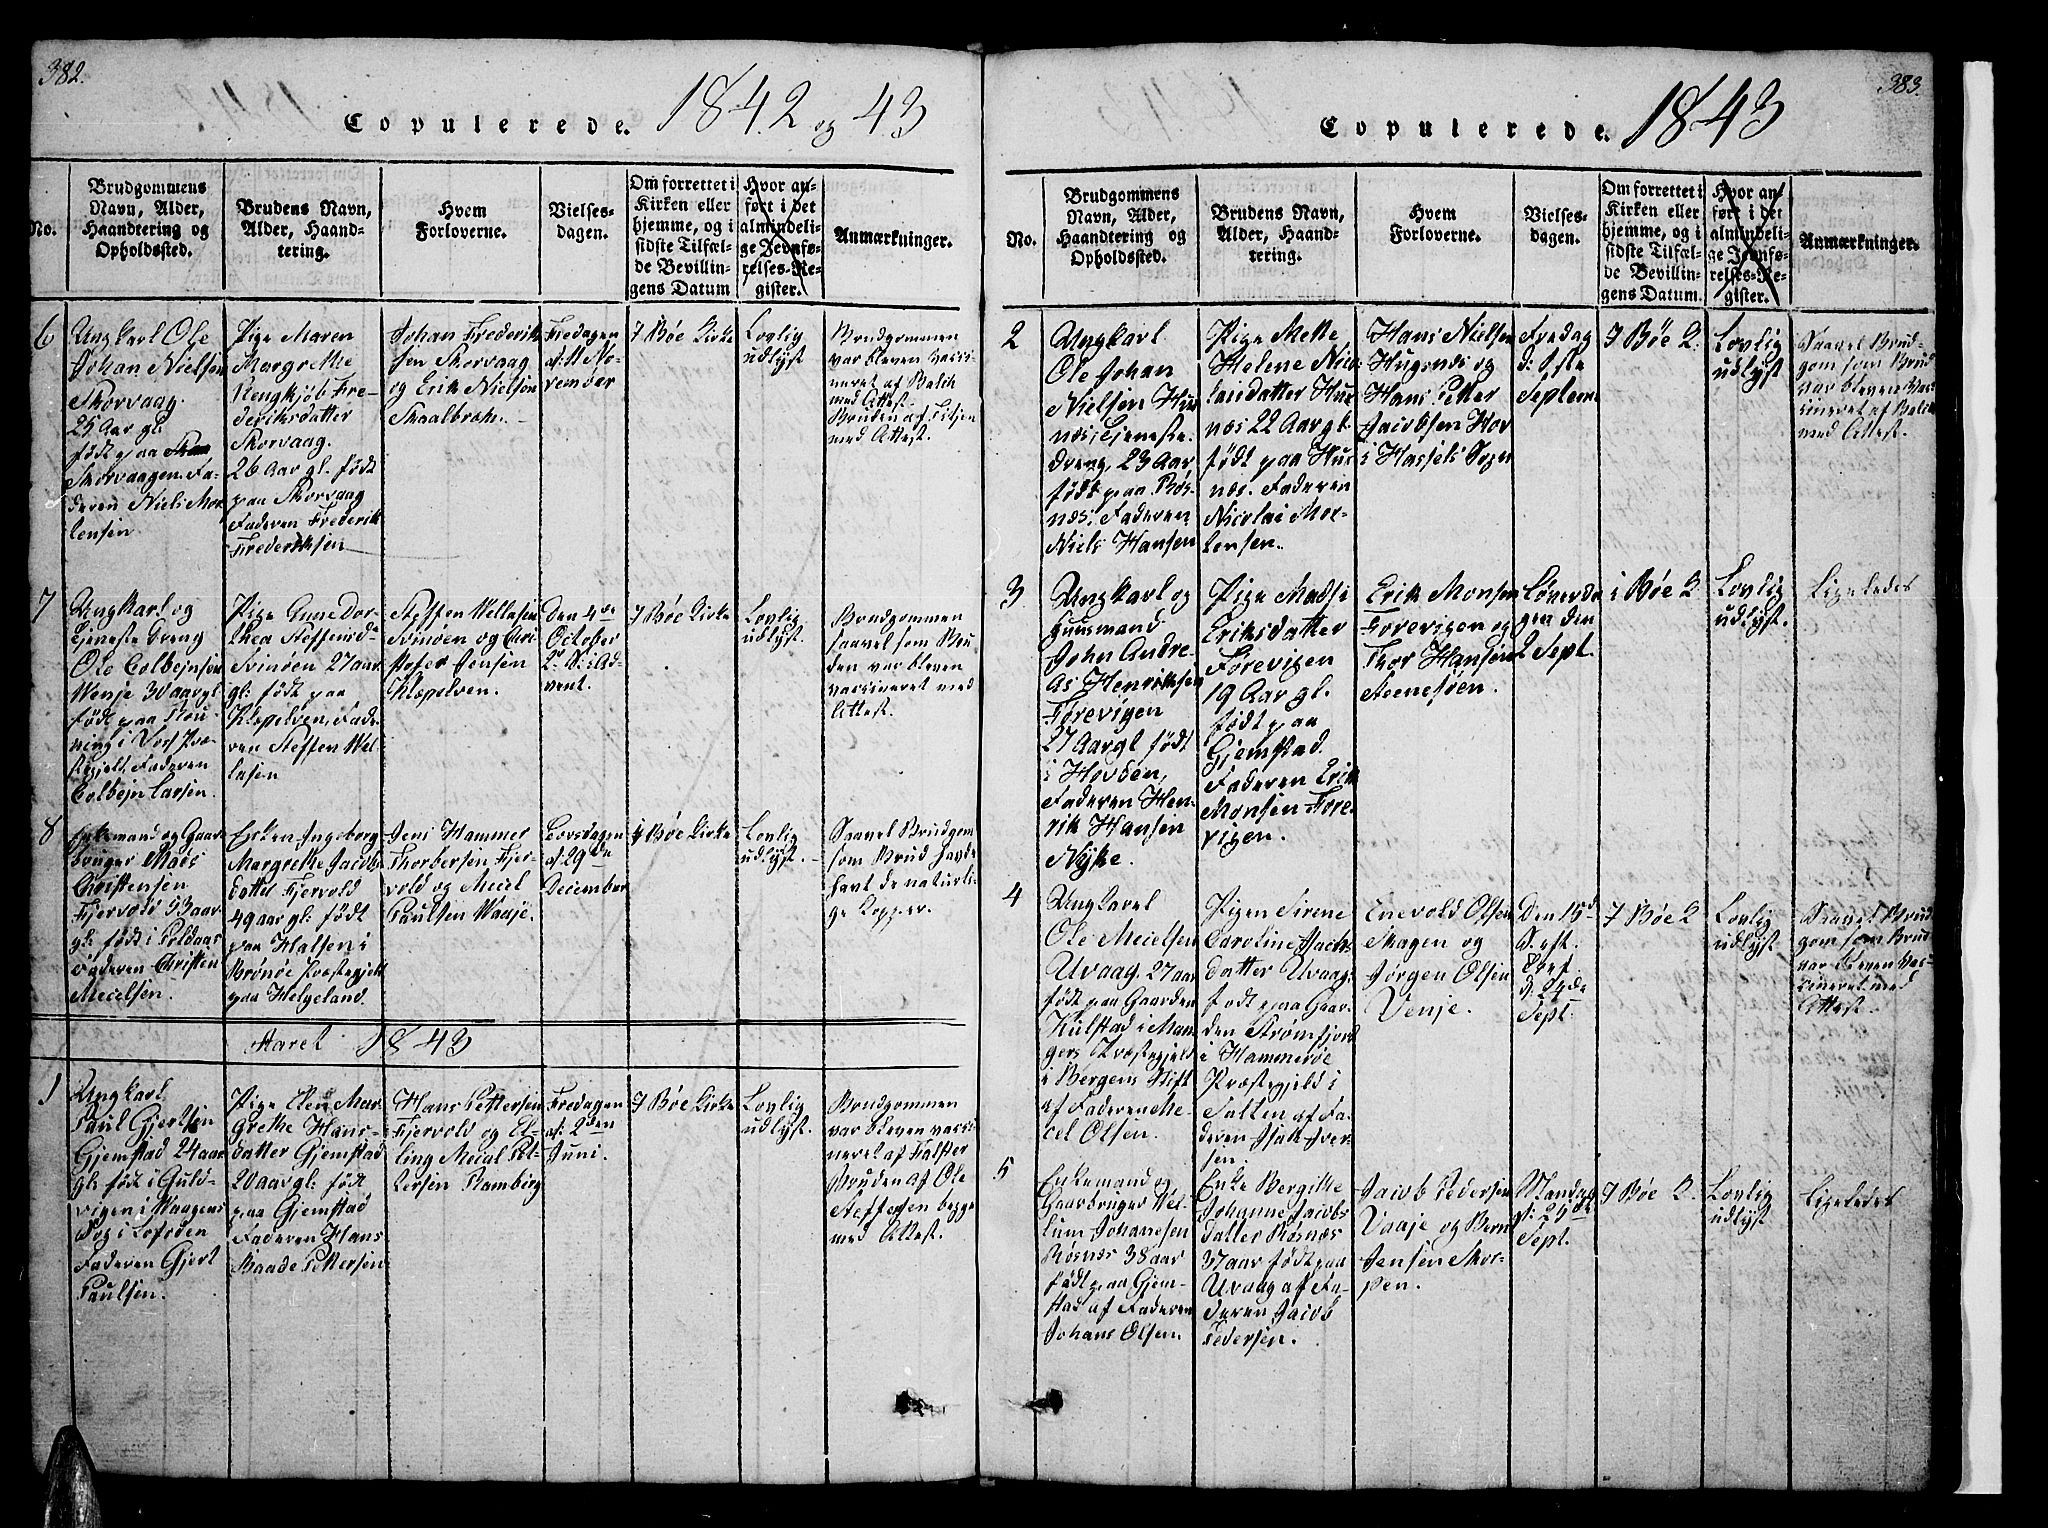 382.
Copulerede. 1842 og 43
No.
Brudgommens
Navn, Alder,
Haandtering og
Opholdssted.
Brudens Navn,
Alder, Haand-
tering.
Hvem
Forloverne.
Vielses-
dagen.
Om forrettet i
Kirken eller
hjemme, og i
sidste Tilfæl-
de Bevillin-
gens Datum
Hvor an-
ført i det
almindeli-
ge Jevnfø-
relses-Re-
gister.
Anmærkninger.
6
Ungkarl Ole
Johan Nielsen
Skorvaag.
25 Aar gl.
født paa
Skorvaagen. Fa-
deren Niels Mor
tensen
Pige Maren
Margrethe
Rengkjøb Fre-
deriksdatter
Skorvaag.
26 Aar gl. født
paa Skorvaag
Faderen Frederik
Frederiksen
Johan Frederik
sen Skorvaag
og Erik Nielsen
Skaalbrek.
Fredagen
d: 11te No-
vember
I Bøe Kirke
Lovlig
udlyst
Brudgommen
var bleven vacci-
neret af Balch
med Attest.
Bruden af
med Attest.
7
Ungkarl og
Tjeneste Dreng
Ole Colbejnsen
Wenje 30 aar gl
født paa
ning i Vos Præ-
stegjelt. Faderen
Colbejn Larsen.
Pige Anne Dor-
thea Steffensd-
Svinøen 27 aar
gl: født paa
Klepelven, Fade-
ren Steffen Wel-
lesen
Steffen Wellesen
Svinøen og Chri
stofer Jensen
Klepelven.
Den 4de
October
2. S. i Ad-
vent.
I Bøe Kirke
Lovlig
udlyst.
Brudgommen
saavel som Bru
den var bleven
vaccineret med
Attest.
8
Enkemand og Gaar
bruger Mads
Christensen
Fjervold 53 aar
gl: født i
Faderen Christen
Micelsen.
Enken Ingeborg
Margrethe Jacobs
datter Fjervold
49 aar gl: født
paa Halsen i
Brønøe Præstegjelt
paa Helgeland.
Jens Hammer
Thorbersen Fjer-
vold og Micel
Paulsen Waaje.
Torsdagen
d: 29de
December
I Bøe Kirke
Lovlig
udlyst.
Saavel Brudgom
som Brud havde
havt de naturli-
ge Kopper.
Aaret 1843
1
Ungkarl
Paul Gjertsen
Gjemstad 24 aar
gl: født i Guld-
vigen i Waagens
Sog i Lofoden
Faderen Gjert
Paulsen.
Pige Elen Mar
grethe Hans-
datter Gjemstad
20 aar gl: født
paa Gjemstad
Faderen Hans
Baade Pettersen
Hans Pettersen
Fjervold og El-
ling Meiel Pet-
tersen Ramberg
Fredagen
d: 2den
Juni.
I Bøe Kirke
Lovlig
udlyst.
Brudgommen
var bleven vacci
neret af Falster
Bruden af Ole
Steffesen begge
med Attest.
383.
Copulerede. 1843
No.
Brudgommens
Navn, Alder,
Haandtering og
Opholdssted.
Brudens Navn,
Alder, Haand-
tering.
Hvem
Forloverne.
Vielses-
dagen.
Om forrettet i
Kirken eller
hjemme, og i
sidste Tilfæl-
de Bevillin-
gens Datum.
Hvor an-
ført i det
almindeli-
ge Jevnfø-
relses-Re-
gister.
Anmærkninger.
2
Ungkarl
Ole Johan
Nielsen Hus
næs, Tjeneste-
dreng, 23 Aar,
født paa Røs-
næs. Faderen
Niels Hansen
Pige Mette
Helene Nico
laisdatter Hus
næs 22 Aar gl.
født paa Hus-
næs. Faderen
Nicolai Mor-
tensen.
Hans Nielsen
Husnæs og
Hans Petter
Jacobsen Hov
i Hassels Sogn
Fredag
d: 1ste
Septem
I Bøe K.
Lovlig
udlyst
Saavel Brud-
gom som Brud
var bleven vac-
cineret af Balch
med Attest.
3
Ungkarl og
Huusmand
John Andre-
as Henriksen
Forevigen
27 Aar gl født
i Hovden,
Faderen Hen-
rik Hansen
Nyke.
Pige Madsi
Eriksdatter
Forevigen
19 Aar gl.
født paa
Gjemstad.
Faderen Erik
Monsen Fore-
vigen.
Erik Monsen
Forevigen og
Thor Hansen
Steenesøen.
Løverda
gen den
2 Sept.
i Bøe K.
Lovlig
udlyst.
Ligeledes
4
Ungkarl
Ole Meielsen
Uvaag. 27 aar
født paa Gaarden
Kulstad i Man
gers Præstegjeld
i Bergens Stift
af Faderen Me-
cel Olsen.
Pigen Sirene
Caroline Isachs
datter Uvaag
født paa Gaar-
den Strømfjord
i Hammerøe
Præstegjeld i
Salten af Fa-
deren Isak Iver-
sen.
Enevold Olsen
Skagen og
Jørgen Olsen
Venje.
Den 15d
S. eft.
Tref
d: 24de
Sept.
I Bøe K.
Lovlig
udlyst.
Saavel Brud
gom som Brud
var bleven vac-
cineret med
Attest.
5
Enkemand og
Gaardbruger Wel-
lum Johansen
Røsnæs 38 aar
født paa Gjem-
stad af Faderen
Johans Olsen.
Enke Bergithe
Johanne Jacobs
datter Røsnæs
37 aar født paa
Uvaag af Fa-
deren Jacob
Pedersen.
Jacob Pedersen
Vaaje og Bernt
Jensen Skor-
pen.
Mandag
d: 25de
Sept.
I Bøe K.
Lovlig
udlyst
Ligeledes